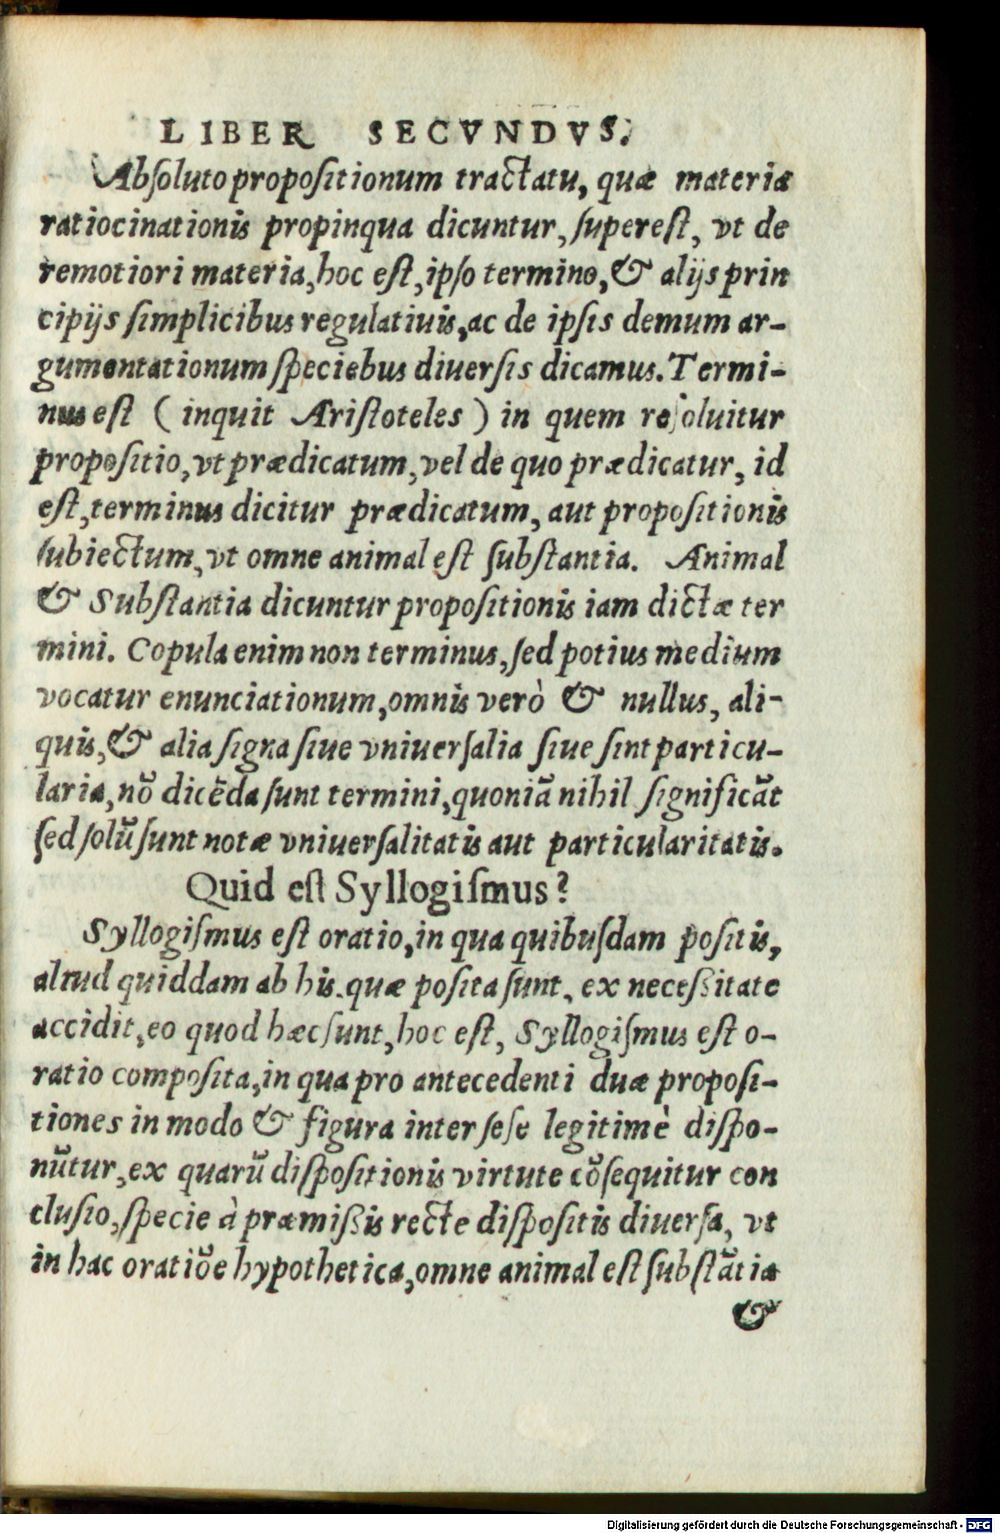 LIBER SECVNDVS.
Abſoluto propoſitionum tractatu, quæ materia
ratiocinationis propinqua dicuntur, ſupereſt, vt de
remotiori materia, hoc eſt, ipſo termino, & alijs prin
cipijs ſimplicibus regulatiuis, ac de ipſis demum ar-
gumentationum ſpeciebus diuerſis dicamus. Termi-
nus eſt ( inquit Ariſtoteles ) in quem reſoluitur
propoſitio, vt prædicatum, vel de quo prædicatur, id
eſt, terminus dicitur prædicatum, aut propoſitionis
ſubiectum, vt omne animal eſt ſubſtantia. Animal
& Subſtantia dicuntur propoſitionis iam dictæ ter
mini. Copula enim non terminus, ſed potius medium
vocatur enunciationum, omnis verò & nullus, ali-
quis, & alia ſigna ſiue vniuerſalia ſiue ſint particu-
laria, nō dicēda ſunt termini, quoniā nihil ſignificāt
ſed ſolū ſunt notæ vniuerſalitatis aut particularitatis.
Quid eſt Syllogiſmus?
Syllogiſmus eſt oratio, in qua quibuſdam poſitis,
aliud quiddam ab his, quæ poſita ſunt, ex neceſsitate
accidit, eo quod hæc ſunt, hoc eſt, Syllogiſmus eſt o-
ratio compoſita, in qua pro antecedenti duæ propoſi-
tiones in modo & figura inter ſeſe legitimè diſpo-
nūtur, ex quarū diſpoſitionis virtute cōſequitur con
cluſio, ſpecie à præmiſsis recte diſpoſitis diuerſa, vt
in hac oratiōe hypothetica, omne animal eſt ſubſtātia
&
Digitalisierung gefördert durch die Deutsche Forschungsgemeinschaft - DFG